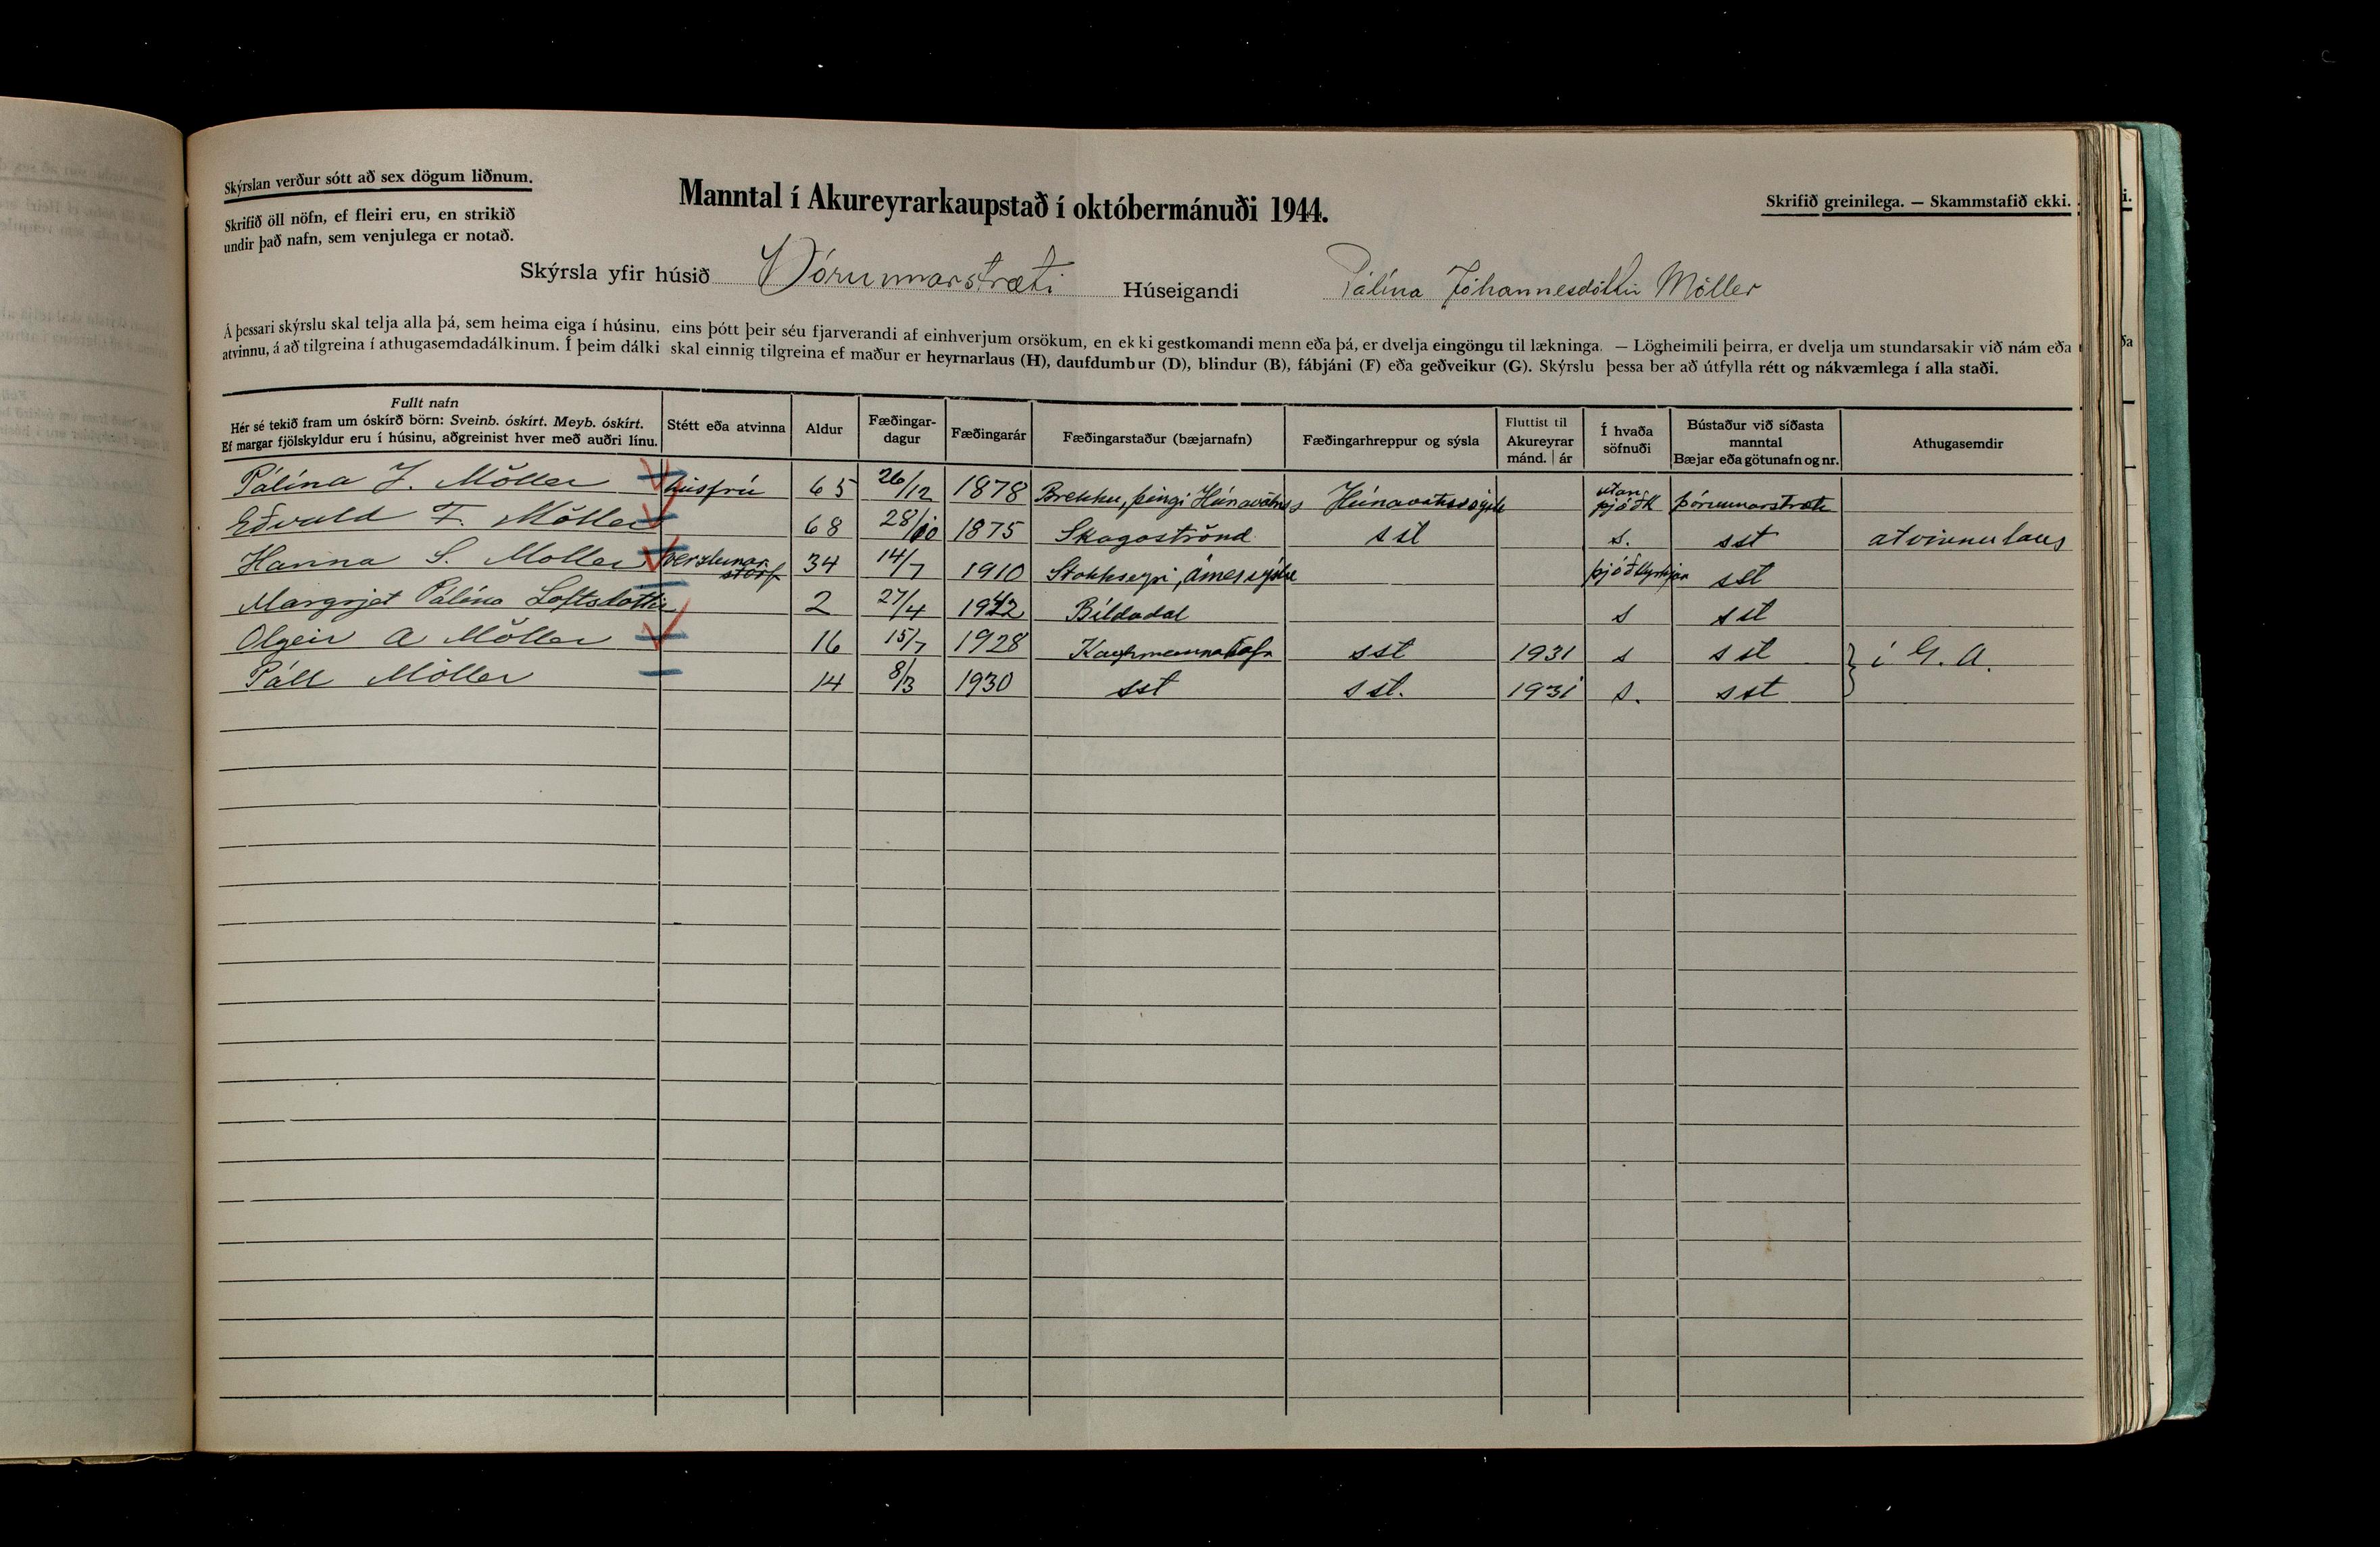 Skýrslan verður sótt að sex dögum liðnum.
Skrifið öll nöfn, ef fleiri eru, en strikið
undir það nafn, sem venjulega er notað.
Manntal í Akureyrarkaupstað í októbermánuði 1944.
Skrifið greinilega. — Skammstafið ekki.
Skýrsla yfir húsið Þórunnarstræti Húseigandi Pálína Jóhannesdóttir Möller
Á þessari skýrslu skal telja alla þá, sem heima eiga í húsinu, eins þótt þeir séu fjarverandi af einhverjum orsökum, en ekki gestkomandi menn eða þá, er dvelja eingöngu til lækninga. — Lögheimili þeirra, er dvelja um stundarsakir við nám eða
atvinnu, á að tilgreina í athugasemdadálkinum. Í þeim dálki skal einnig tilgreina ef maður er heyrnarlaus (H), daufdumbur (D), blindur (B), fábjáni (F) eða geðveikur (G). Skýrslu þessa ber að útfylla rétt og nákvæmlega í alla staði.
Fullt nafn
Hér sé tekið fram um óskírð börn: Sveinb. óskírt. Meyb. óskírt.
Ef margar fjölskyldur eru í húsinu, aðgreinist hver með auðri línu.
Stétt eða atvinna
Aldur
Fæðingar-
dagur
Fæðingarár
Fæðingarstaður (bæjarnafn)
Fæðingarhreppur og sýsla
Fluttist til
Akureyrar
mánd. | ár
Í hvaða
söfnuði
Bústaður við síðasta
manntal
Bæjar eða götunafn og nr.
Athugasemdir
Pálína J. Möller húsfrú 65 26/12 1878 Brekku, þingi Húnavatnss Húnavatnssýslu utan þjóðk Þórunnarstræti
Eðvald F. Möller 68 28/10 1875 Skagaströnd sst s. sst atvinnulaus
Hanna S. Moller verzlunar störf 34 14/7 1910 Stokkseyri, Árnessýslu þjóðkyrkjan sst
Margrjet Pálína Loftsdóttir 2 27/4 1942 Bíldudal s sst
Olgeir A Möller 16 15/7 1928 Kaupmannahöfn sst 1931 s sst } í G.A.
Páll Möller 14 8/3 1930 sst sst. 1931 s. sst